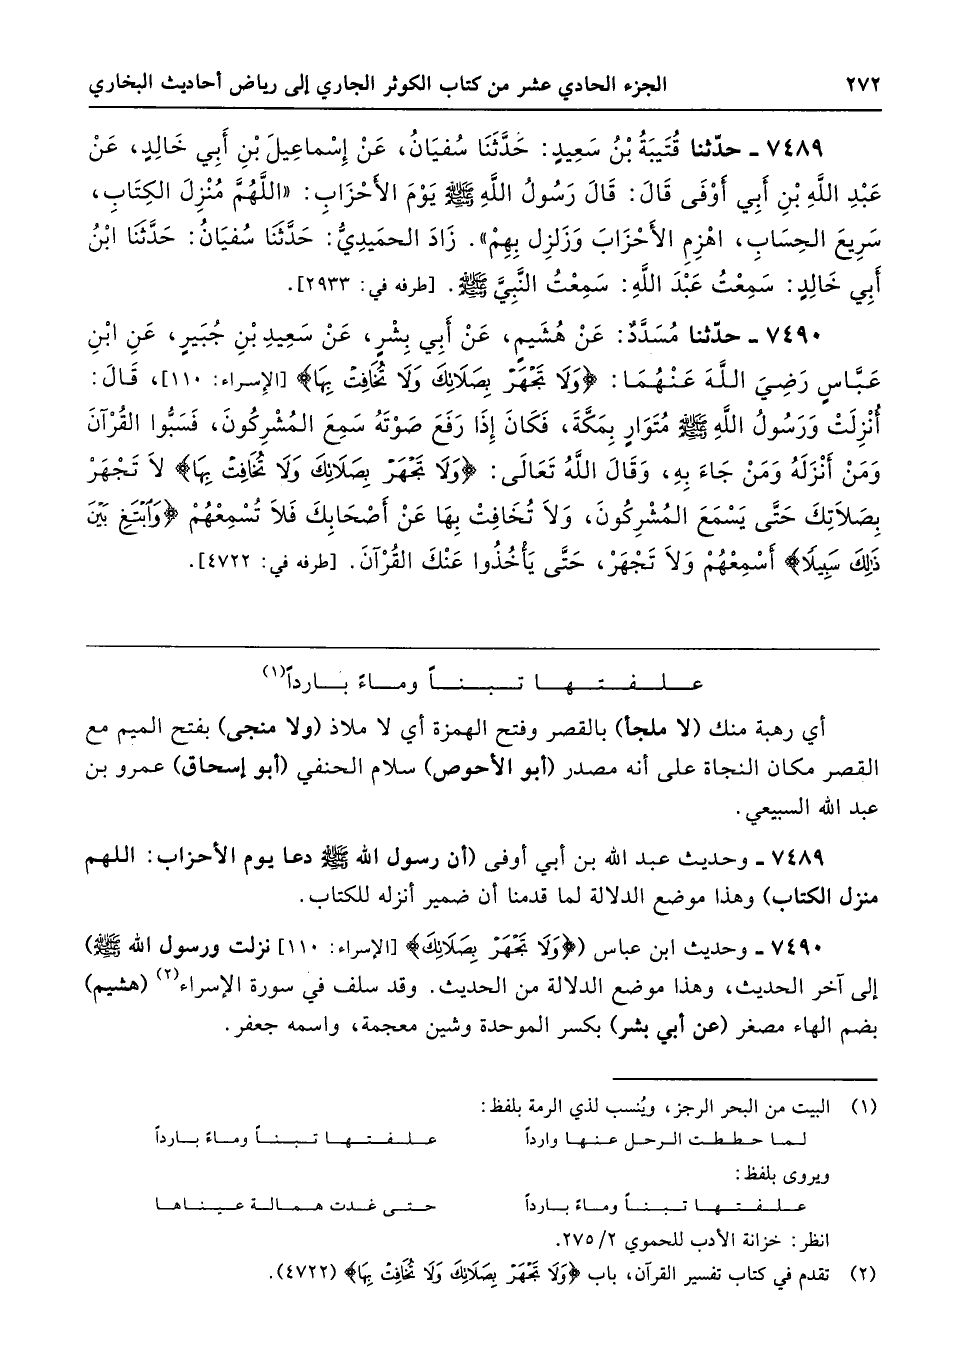 ٢٧٢ الجزء الحادي عشر من كتاب الكوثر الجاري إلى رياض أحاديث البخاري
٧٤٨٩ ـ حدّثنا قُتَيبَةُ بْنُ سَعِيدٍ: حَدَّثَنَا سُفيَانُ، عَنْ إِسْماعِيلَ بْنِ أَبِي خَالِدٍ، عَنْ
عَبْدِ اللَّهِ بْنِ أَبِي أَوْفَى قَالَ: قَالَ رَسُولُ اللَّهِ ﷺ يَوْمَ الأَحْزَابِ: «اللَّهُمَّ مُنْزِلَ الكِتَابِ،
سَرِيعَ الحِسَابِ، اهْزِمِ الأَحْزَابَ وَزَلزِل بِهِمْ». زَادَ الحُمَيدِيُّ: حَدَّثَنَا سُفيَانُ: حَدَّثَنَا ابْنُ
أَبِي خَالِدٍ: سَمِعْتُ عَبْدَ اللَّهِ: سَمِعْتُ النَّبِيَّ ﷺ. [طرفه في: ٢٩٣٣].
٧٤٩٠ ـ حدّثنا مُسَدَّدٌ: عَنْ هُشَيمٍ، عَنْ أَبِي بِشْرٍ، عَنْ سَعِيدِ بْنِ جُبَيرٍ، عَنِ ابْنِ
عَبَّاسٍ رَضِيَ اللَّهُ عَنْهُمَا: ﴿وَلَا تَجْهَرْ بِصَلَاتِكَ وَلَا تُخَافِتْ بِهَا﴾ [الإسراء: ١١٠]، قَالَ:
أُنْزِلَتْ وَرَسُولُ اللَّهِ ﷺ مُتَوَارٍ بِمَكَّةَ، فَكَانَ إِذَا رَفَعَ صَوْتَهُ سَمِعَ المُشْرِكُونَ، فَسَبُّوا القُرْآنَ
وَمَنْ أَنْزَلَهُ وَمَنْ جَاءَ بِهِ، وَقَالَ اللَّهُ تَعَالَى: ﴿وَلَا تَجْهَرْ بِصَلَاتِكَ وَلَا تُخَافِتْ بِهَا﴾ لاَ تَجْهَرْ
بِصَلاَتِكَ حَتَّى يَسْمَعَ المُشْرِكُونَ، وَلاَ تُخَافِتْ بِهَا عَنْ أَصْحَابِكَ فَلاَ تُسْمِعُهُمْ ﴿وَابْتَغِ بَيْنَ
ذَلِكَ سَبِيلًا﴾ أَسْمِعْهُمْ وَلاَ تَجْهَرْ، حَتَّى يَأْخُذُوا عَنْكَ القُرْآنَ. [طرفه في: ٤٧٢٢].
علفتها تبناً وماءً بارداً(١)
أي رهبة منك (لا ملجأ) بالقصر وفتح الهمزة أي لا ملاذ (ولا منجى) بفتح الميم مع
القصر مكان النجاة على أنه مصدر (أبو الأحوص) سلام الحنفي (أبو إسحاق) عمرو بن
عبد الله السبيعي.
٧٤٨٩ ـ وحديث عبد الله بن أبي أوفى (أن رسول الله ﷺ دعا يوم الأحزاب: اللهم
منزل الكتاب) وهذا موضع الدلالة لما قدمنا أن ضمير أنزله للكتاب.
٧٤٩٠ ـ وحديث ابن عباس (﴿وَلَا تَجْهَرْ بِصَلَاتِكَ﴾ [الإسراء: ١١٠] نزلت ورسول الله ﷺ)
إلى آخر الحديث، وهذا موضع الدلالة من الحديث. وقد سلف في سورة الإسراء(٢) (هشيم)
بضم الهاء مصغر (عن أبي بشر) بكسر الموحدة وشين معجمة، واسمه جعفر.
(١) البيت من البحر الرجز، ويُنسب لذي الرمة بلفظ:
لما حططت الرحل عنها وارداً علفتها تبناً وماءً بارداً
ويروى بلفظ:
علفتها تبناً وماءً بارداً حتى غدت همالة عيناها
انظر: خزانة الأدب للحموي ٢/ ٢٧٥.
(٢) تقدم في كتاب تفسير القرآن، باب ﴿وَلَا تَجْهَرْ بِصَلَاتِكَ وَلَا تُخَافِتْ بِهَا﴾ (٤٧٢٢).